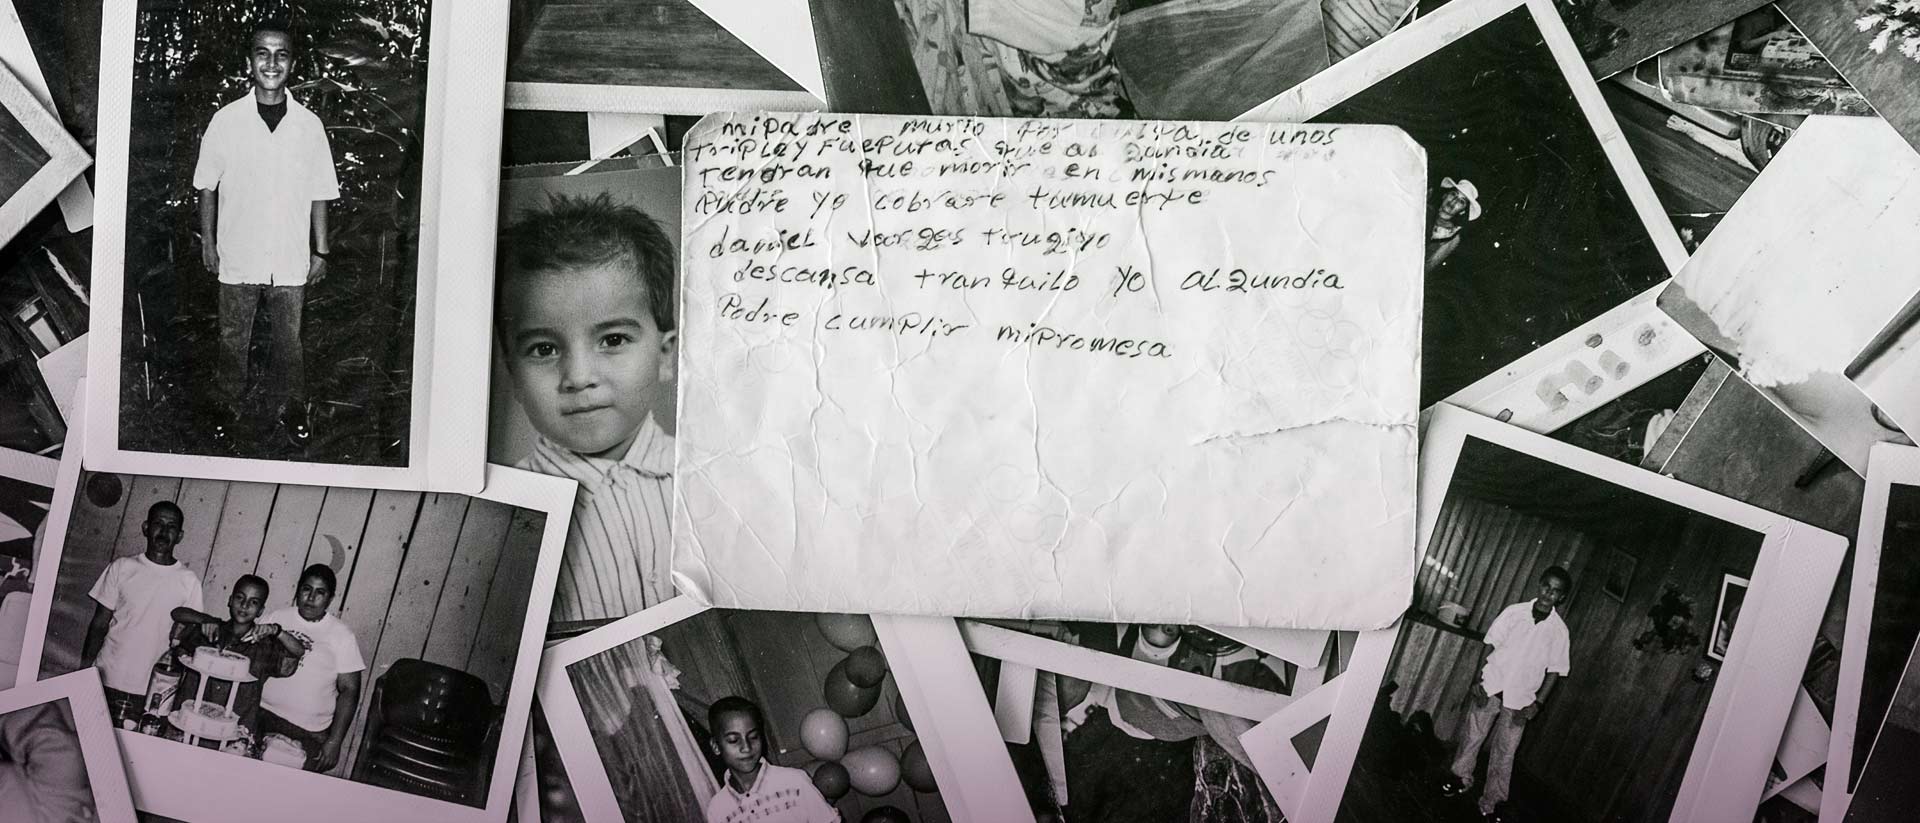 miPadre murio Por culPa de unos
triPLay FuePutas que aL2undia
tendran que morir en mismanos
Padre yo cobrare tumuerte
danieL vargas trugiyo
descansa tranquilo yo aL2undia
Padre cumPlir miPromesa